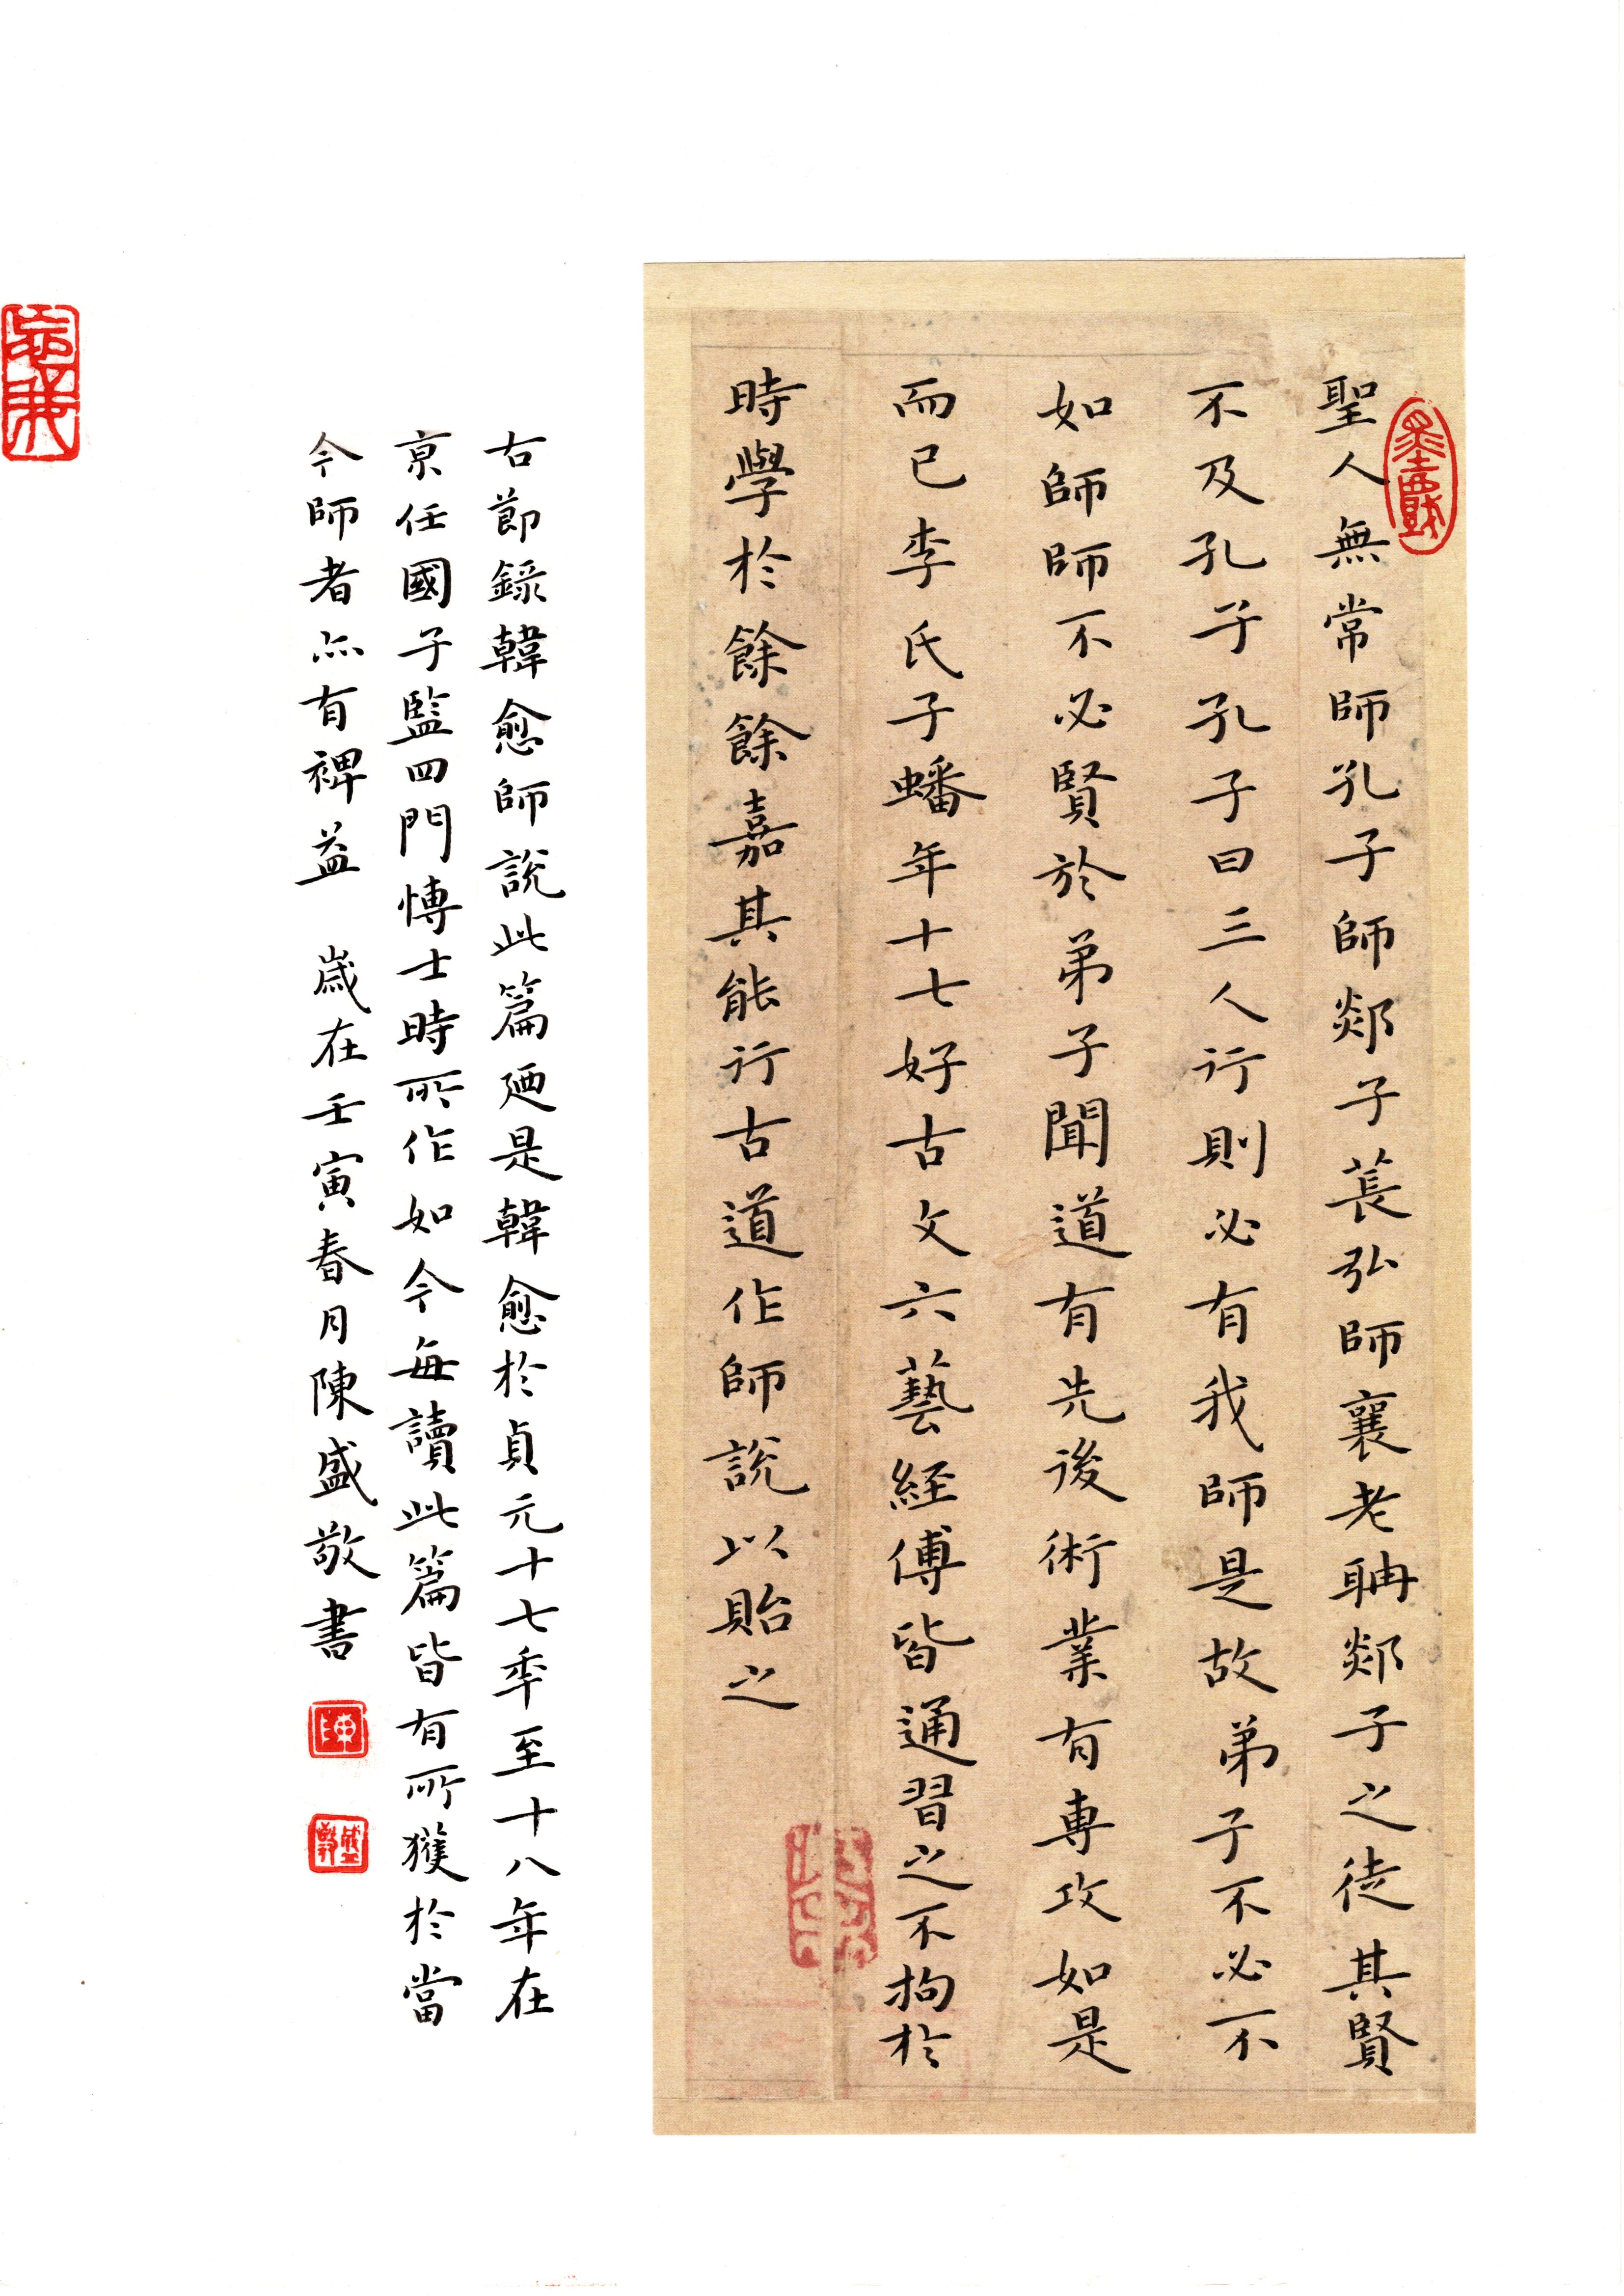 聖人無常師孔子師郯子萇弘師襄老聃郯子之徒其賢
不及孔子孔子曰三人行則必有我師是故弟子不必不
如師師不必賢於弟子聞道有先後術業有專攻如是
而已李氏子蟠年十七好古文六藝經傳皆通習之不拘於
時學於餘餘嘉其能行古道作師說以貽之
古節錄韓愈師說此篇廼是韓愈於貞元十七年至十八年在
京任國子監四門博士時所作如今每讀此篇皆有所獲於當
今師者亦有裨益 歲在壬寅春月陳盛敬書
墨戲